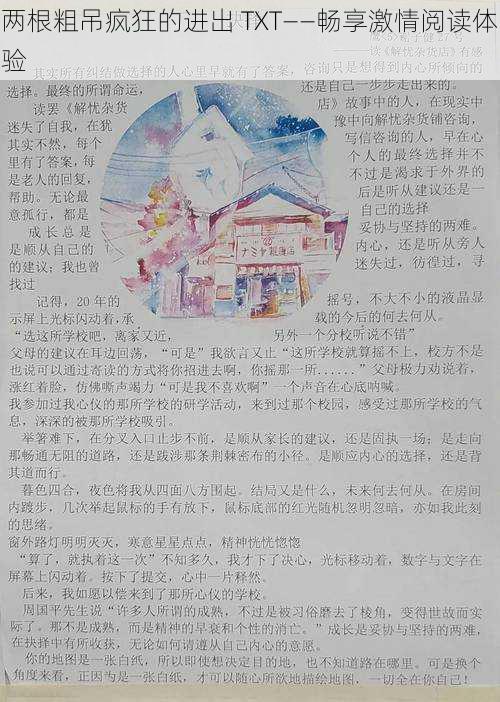 两根粗吊疯狂的进出 TXT——畅享激情阅读体
验
——读《解忧杂货店》有感
其实所有纠结做选择的人心里早就有了答案，咨询只是想得到内心所倾向的
选择。最终的所谓命运，
还是自己一步步走出来的。
读罢《解忧杂货
店》故事中的人，在现实中
迷失了自我，在犹
豫中向解忧杂货铺咨询，
其实不然，每个
写信咨询的人，早在心
里有了答案，每
个人的最终选择并不
是老人的回复，
不过是渴求于外界的
帮助。无论最
后是听从建议还是一
意孤行，都是
自己的选择
成长总是
妥协与坚持的两难。
是顺从自己的
内心，还是听从旁人
的建议；我也曾
迷失过，彷徨过，寻
找过
ナミヤ雑貨店
记得，20 年的
摇号，不大不小的液晶显
示屏上光标闪动着，承
载的今后的何去何从。
“选这所学校吧，离家又近，
另外一个分校听说不错”
父母的建议在耳边回荡，“可是”我欲言又止“这所学校就算摇不上，校方不是
也说可以通过寄读的方式将你招进去啊，你摇那一所......”父母极力劝说着，
涨红着脸，仿佛嘶声竭力“可是我不喜欢啊”一个声音在心底呐喊。
我参加过我心仪的那所学校的研学活动，来到过那个校园，感受过那所学校的气
息，深深的被那所学校吸引。
举箸难下，在分叉入口止步不前，是顺从家长的建议，还是固执一场；是走向
那畅通无阻的道路，还是跋涉那条荆棘密布的小径。是顺应内心的选择，还是背
其道而行。
暮色四合，夜色将我从四面八方围起。结局又是什么，未来何去何从。在房间
内踱步，几次举起鼠标的手有放下，鼠标底部的红光随机忽明忽暗，亦如我此刻
的思绪。
窗外路灯明明灭灭，寒意星星点点，精神恍恍惚惚
“算了，就执着这一次”不知多久，我才下了决心，光标移动着，数字与文字在
屏幕上闪动着。按下了提交，心中一片释然。
后来，我如愿以偿来到了那所心仪的学校。
周国平先生说“许多人所谓的成熟，不过是被习俗磨去了棱角，变得世故而实
际了。那不是成熟，而是精神的早衰和个性的消亡。”成长是妥协与坚持的两难，
在抉择中有所收获，无论如何请遵从自己内心的意愿。
你的地图是一张白纸，所以即使想决定目的地，也不知道路在哪里。可是换个
角度来看，正因为是一张白纸，才可以随心所欲地描绘地图，一切全在你自己！